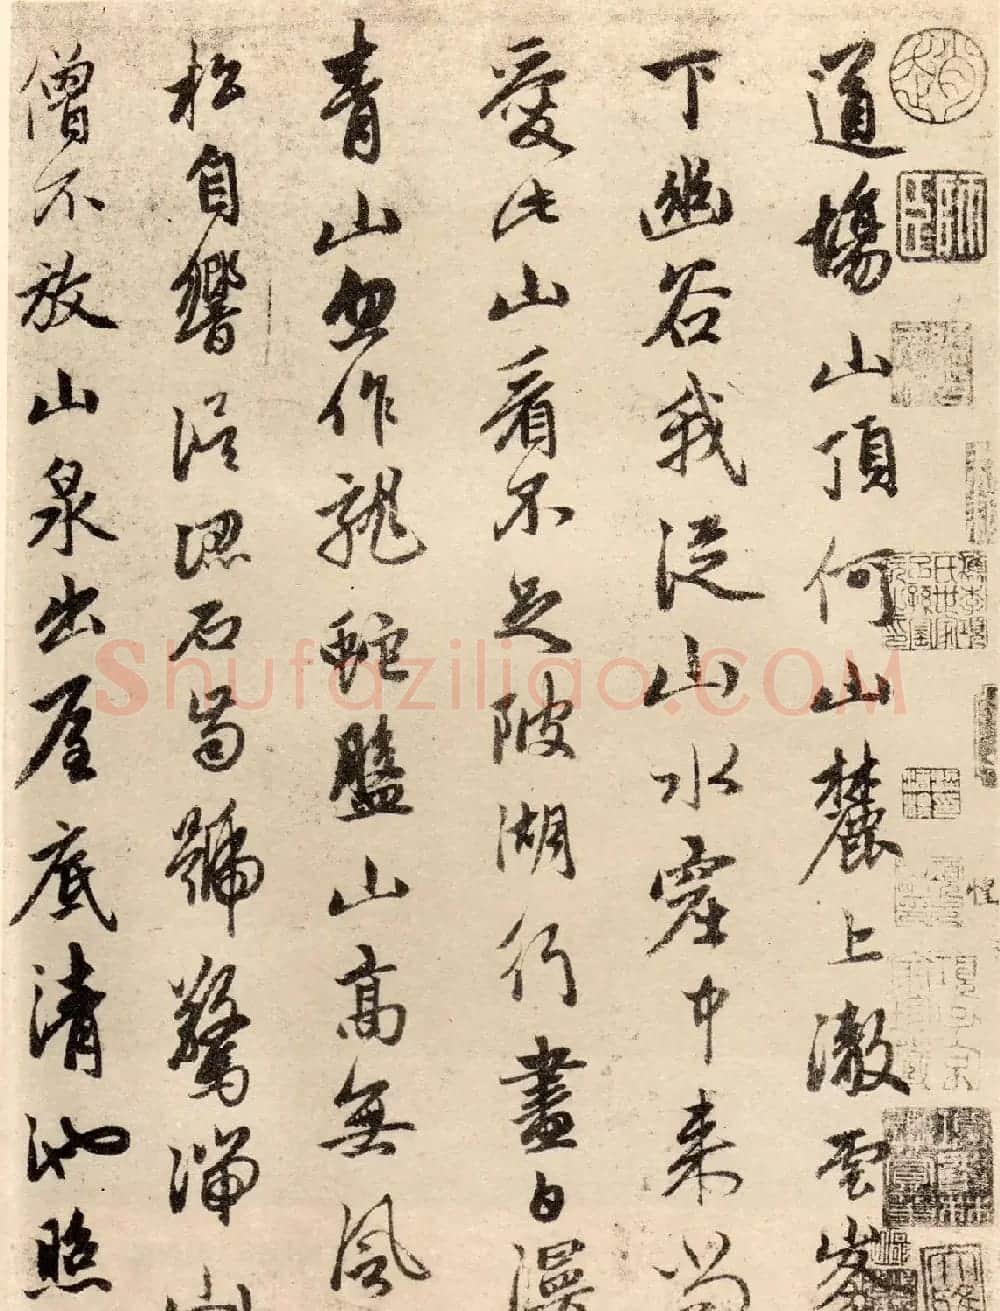 道場山頂何山麓上澈雲峯
下幽谷我從山水窟中來尚
愛此山看不足陂湖行盡白漫
青山忽作龍蛇盤山高無風
松自響誤認石齒號驚湍山
僧不放山泉出屋底清池照
Shufaziliao.COM